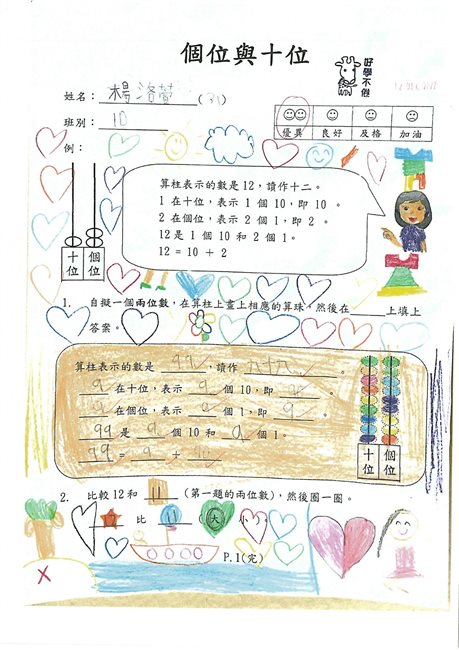 個位與十位
好學不倦
姓名：楊洛(31)
班別：1D
優異 良好 及格 加油
例：
算柱表示的數是12，讀作十二。
1 在十位，表示 1 個 10，即 10 。
2 在個位，表示 2 個 1，即 2 。
12 是 1 個 10 和 2 個 1。
12 = 10 + 2
十位 個位
1. 自擬一個兩位數，在算柱上畫上相應的算珠，然後在____上填上
答案。
算柱表示的數是 99，讀作。
9 在十位，表示 9 個 10，即。
9 在個位，表示 9 個 1，即 9。
99 是 9 個 10 和 9 個 1。
99 = 9 +
十位 個位
2. 比較 12 和 11 (第一題的兩位數)，然後圈一圈。
比 11 (大 小)。
P.1(完)